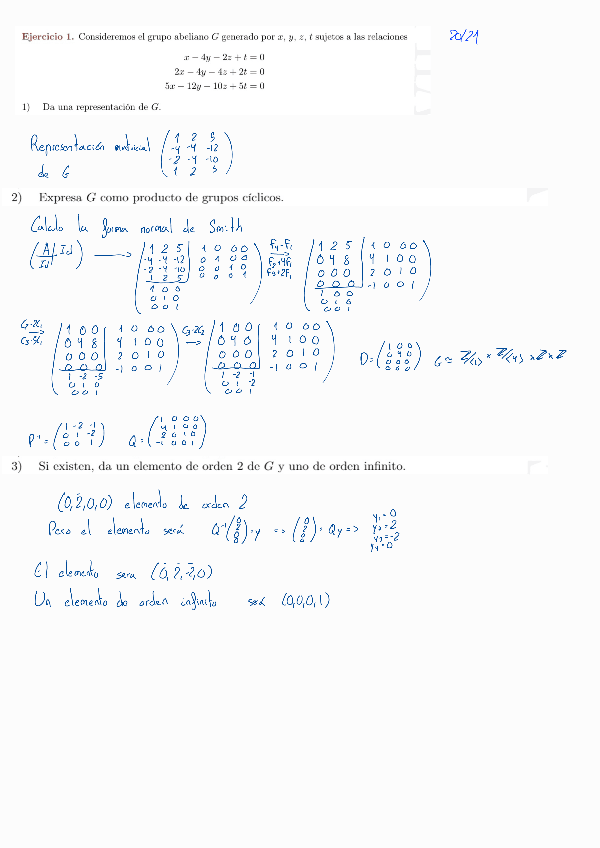 20/21
Ejercicio 1. Consideremos el grupo abeliano G generado por x, y, z, t sujetos a las relaciones
x − 4y − 2z + t = 0
2x − 4y − 4z + 2t = 0
5x − 12y − 10z + 5t = 0
1) Da una representación de G.
Representación matricial
de G
1 2 5
-4 -4 -12
-2 -4 -10
1 2 5
2) Expresa G como producto de grupos cíclicos.
Calculo la forma normal de Smith
(A | Id)
Id
1 2 5 | 1 0 0 0
-4 -4 -12 | 0 1 0 0
-2 -4 -10 | 0 0 1 0
1 2 5 | 0 0 0 1
1 0 0
0 1 0
0 0 1
F4-F1
F2+4F1
F3+2F1
1 2 5 | 1 0 0 0
0 4 8 | 4 1 0 0
0 0 0 | 2 0 1 0
0 0 0 | -1 0 0 1
1 0 0
0 1 0
0 0 1
C2-2C1
C3-5C1
1 0 0 | 1 0 0 0
0 4 8 | 4 1 0 0
0 0 0 | 2 0 1 0
0 0 0 | -1 0 0 1
1 -2 -5
0 1 0
0 0 1
C3-2C2
1 0 0 | 1 0 0 0
0 4 0 | 4 1 0 0
0 0 0 | 2 0 1 0
0 0 0 | -1 0 0 1
1 -2 -1
0 1 -2
0 0 1
D =
1 0 0
0 4 0
0 0 0
0 0 0
G ≃ Z/(1) × Z/(4) × Z × Z
P⁻¹ =
1 -2 -1
0 1 -2
0 0 1
Q =
1 0 0 0
4 1 0 0
2 0 1 0
-1 0 0 1
3) Si existen, da un elemento de orden 2 de G y uno de orden infinito.
(0,2,0,0) elemento de orden 2
Pero el elemento será
y1 = 0
y2 = 2
y3 = -2
y4 = 0
El elemento sera (0,2,-2,0)
Un elemento de orden infinito será (0,0,0,1)